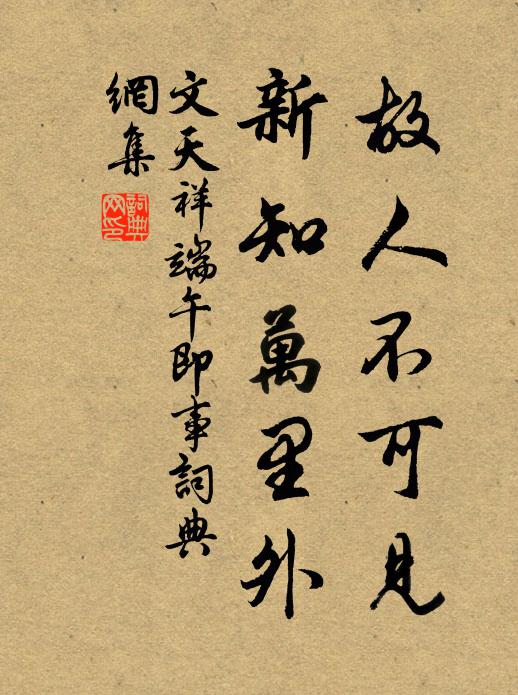 故人不可見
新知萬里外
文天祥端午即事詞典
網集
詞典
网印